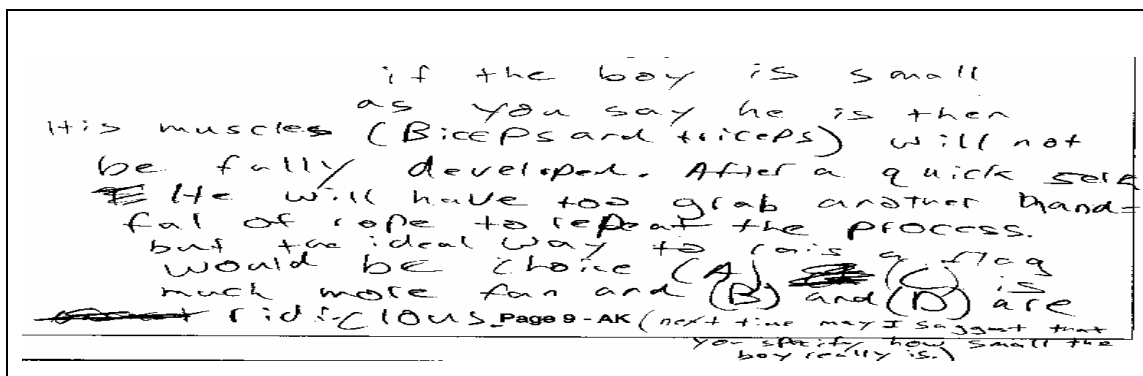 if the boy is small
as you say he is then
His muscles (Biceps and triceps) will not
be fully developed. After a quick
He will have too grab another hand-
ful of rope to repeat the process.
but the ideal way to rais a flag
would be choice (A) (C) is
much more fun and (B) and (D) are
ridiclous. Page 9 - AK (next time may I suggest that
you specify how small the
boy really is.)